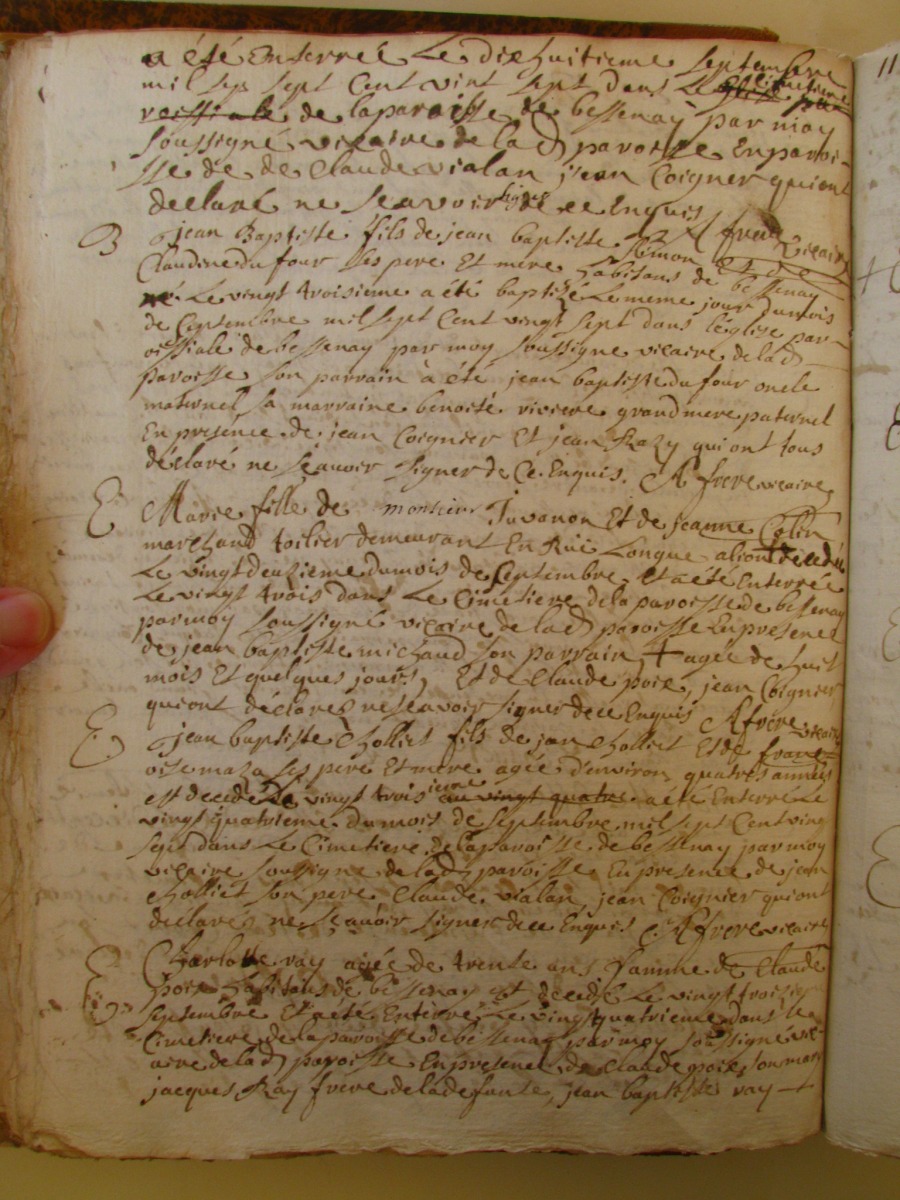 a été Enterreé Le dixhuitieme septembre
mil sep sept Cent vint sept dans Le cimetiere
roissiale de laparoisse de bessenay par moy
soussigné vicaire de lad paroisse En paroi-
sse de de Claude vialan jean Coignier qui ont
declaré ne scavoir signer de ce Enquis
A frere vicaire
B
jean Baptiste fils de jean baptiste simon Et de
Claudine du four ses pere Et mere habitans de bessenay
né Le vingt troisieme a été baptizé Le meme jour du mois
de Septembre mil sept Cent vingt sept dans l'église par-
oissiale de bessenay par moy soussigne vicaire de lad
paroisse son parrain à été jean baptiste du four oncle
maternel sa marraine benoité riviere grand mere paternel
En presence de jean Coignier Et jean Razy qui ont tous
déclaré ne scavoir signer de Ce Enquis. A frere vicaire
E
Marie fille de monsieur Juvanon Et de jeanne Colin
marchand toilier demeurant En Rüe Longue a lion decedée
Le vingt deuzieme du mois de Septembre Et a été Enterrée
Le vingt trois dans Le Cimetiere de la paroisse de bessenay
par moy soussigné vicaire de lad paroisse En presence
de jean baptiste michaud son parrain, + agée de huit
mois Et quelques jours, Et de Claude poix, jean Coignier
qui ont déclarés ne scavoir signer de ce Enquis A frere vicaire
E
jean baptiste Chollict fils de jan Chollict Et de franc-
oise maza ses pere Et mere agée d'environ quatres années
est decedé Le vingt trois ieme au vingt quatre a été Enterré Le
vingt quatrieme du mois de septembre mil sept Cent ving
sept dans Le Cimetiere de la paroisse de bessenay par moy
vicaire soussigne de lad paroisse En presence de jean
Chollict son pere Claude vialan jean Coignier qui ont
declarés ne scavoir signer de ce Enquis A frere vicaire
E
Charlotte ray agée de trente ans famme de Claude
poix habitans de bessenay est decedé Le vingt trois
septembre Et a été Enterré Le vingtquatrieme dans le
Cimetiere de la paroisse de bessenay par moy soussigné vic-
aire de lad paroisse En presence de Claude poix son mary
jacques Ray frere de la defunte, jean baptiste ray